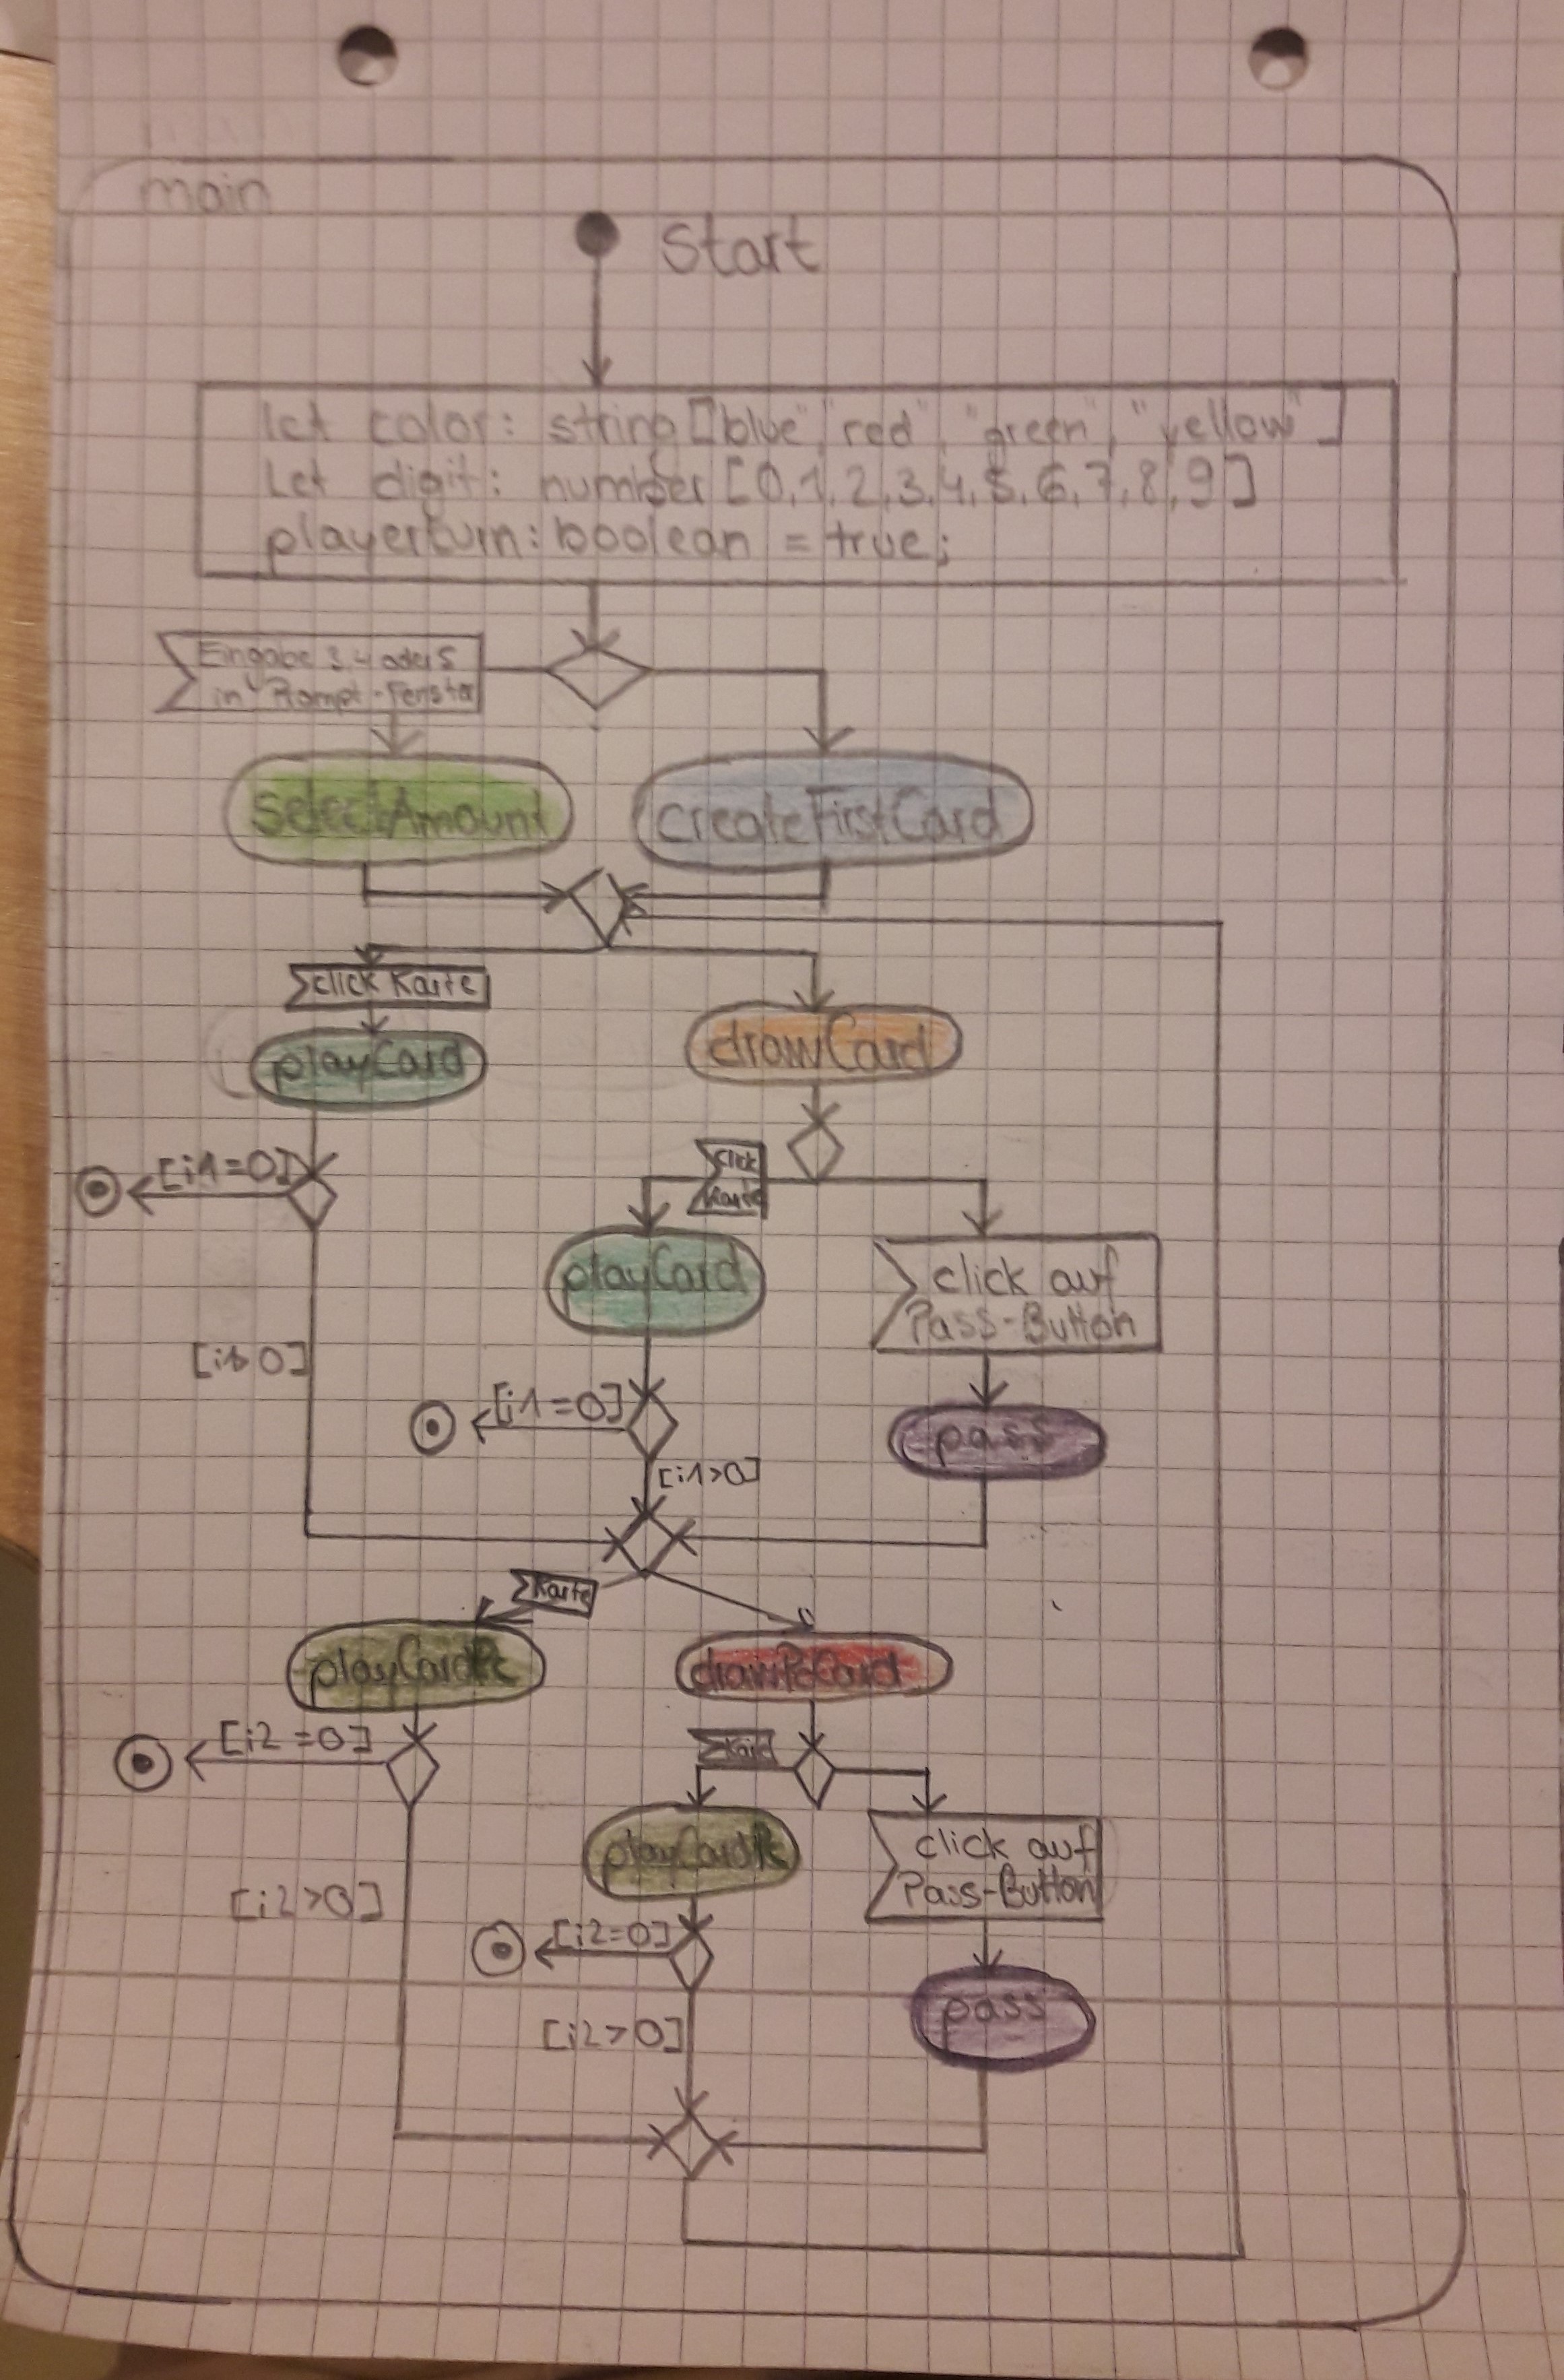 main
Start
let color: string ["blue", "red", "green", "yellow"]
Let digit: number [0,1,2,3,4,5,6,7,8,9]
playerturn: boolean = true;
Eingabe 3,4 oder 5
in Prompt-Fenster
selectAmount
createFirstCard
click Karte
playCard
drawCard
[i1=0]
click
Karte
playCard
click auf
Pass-Button
[i1>0]
[i1=0]
pass
[i1>0]
Karte
playCardPc
drawPcCard
[i2=0]
playCardPc
click auf
Pass-Button
[i2>0]
[i2=0]
pass
[i2>0]